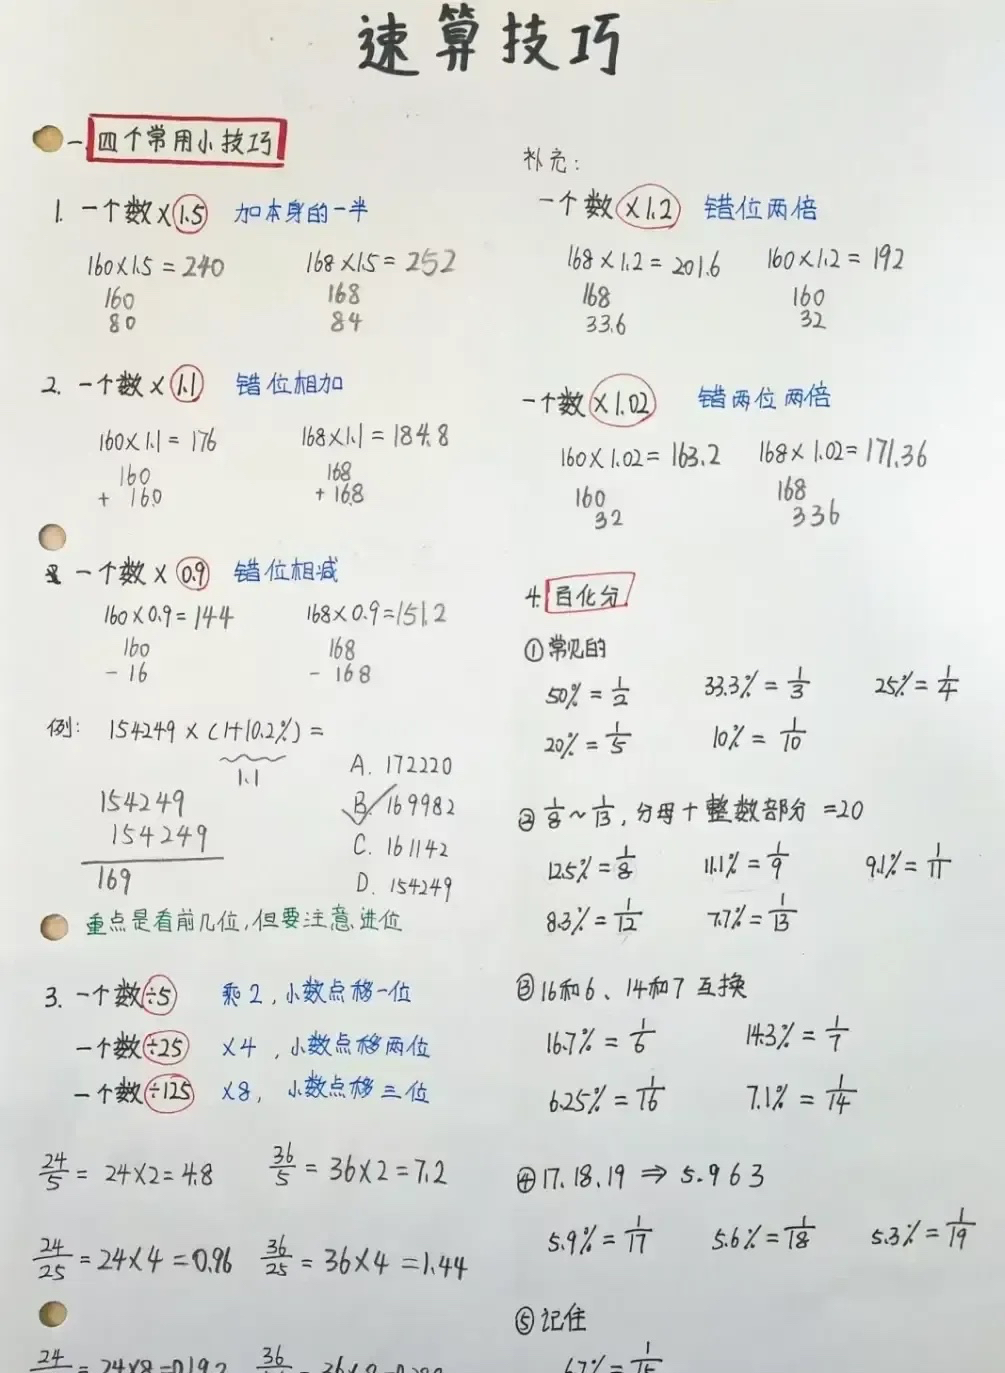 速算技巧
一 四个常用小技巧
1. 一个数×1.5 加本身的一半
160×1.5=240 168×1.5=252
160 168
80 84
2. 一个数×1.1 错位相加
160×1.1=176 168×1.1=184.8
160 168
+ 16.0 + 16.8
一个数×0.9 错位相减
160×0.9=144 168×0.9=151.2
160 168
- 16 - 168
例: 154249×(1+10.2%)=
1.1
A. 172220
154249 B. 169982
154249 C. 161142
169 D. 154249
重点是看前几位,但要注意进位
3. 一个数÷5 乘2,小数点移一位
一个数÷25 ×4,小数点移两位
一个数÷125 ×8,小数点移三位
24/5=24×2=4.8 36/5=36×2=7.2
24/25=24×4=0.96 36/25=36×4=1.44
补充:
一个数×1.2 错位两倍
168×1.2=201.6 160×1.2=192
168 160
33.6 32
一个数×1.02 错两位两倍
160×1.02=163.2 168×1.02=171.36
160 168
32 336
4. 百化分
①常见的
50%=1/2 33.3%=1/3 25%=1/4
20%=1/5 10%=1/10
②1/8~1/13,分母+整数部分=20
12.5%=1/8 11.1%=1/9 9.1%=1/11
8.3%=1/12 7.7%=1/13
③16和6、14和7互换
16.7%=1/6 14.3%=1/7
6.25%=1/16 7.1%=1/14
④17.18.19⇒5.963
5.9%=1/17 5.6%=1/18 5.3%=1/19
⑤记住